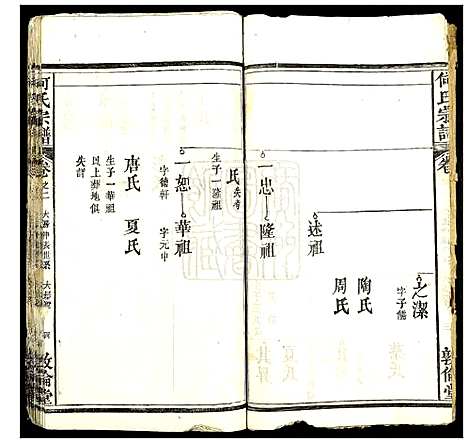 何氏宗譜
卷
敦倫堂
之潔
字子能
陶氏
周氏
述祖
一忠
隆祖
氏失考
生子一隆祖
一恕
華祖
字德軒
字元中
唐氏
夏氏
生子一華祖
以上葬地俱
失詳
何氏宗譜
卷之二
敦倫堂